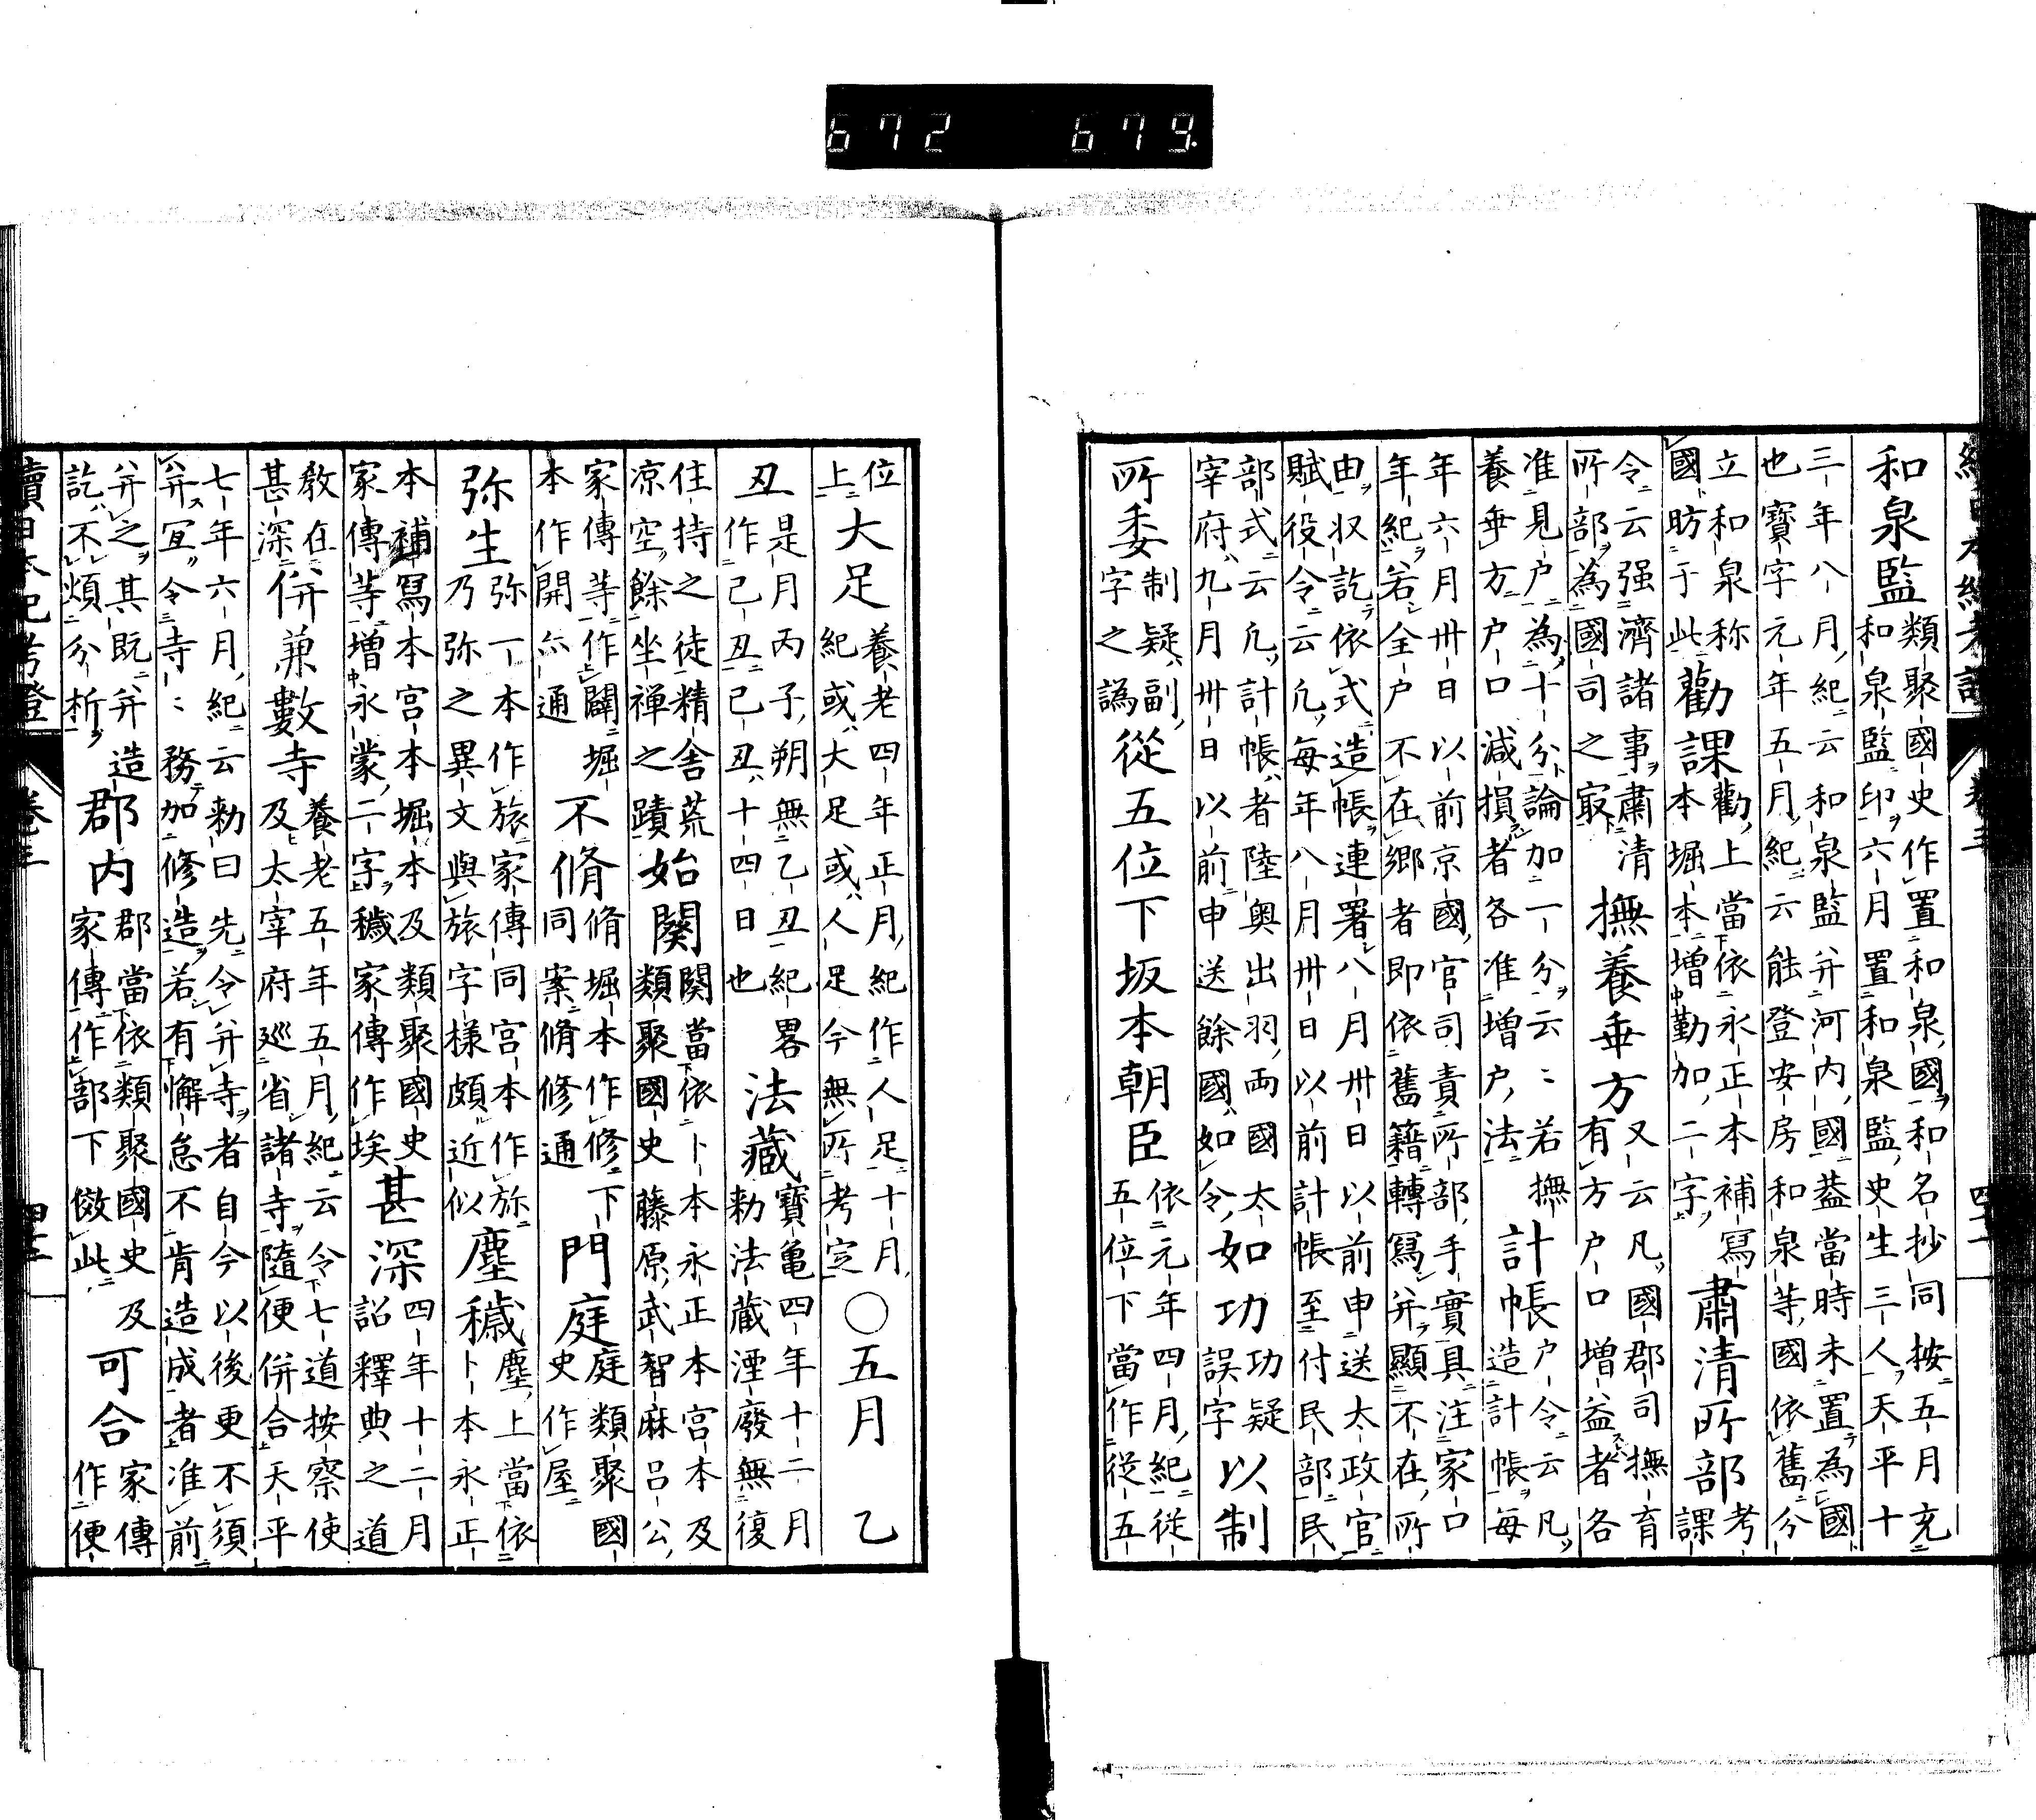 672 679.
和泉監類聚國史作置和泉國和名抄同按五月充
和泉監印六月置和泉監史生三人天平十
三年八月紀云和泉監并河内國葢當時未置為國
也寶字元年五月紀云能登安房和泉等國依舊分
立和泉称
國昉于此勸課勸上當依永正本補寫
本堀本増勤加二字肅清所部考
課
令云强濟諸事肅清
所部為國司之㝡撫養乖方又云凡國郡司撫育
有方户口増益者各
准見户為十分論加一分云〻若撫
養乖方户口減損者各准増户法計帳户令云凡
造計帳每
年六月卅日以前京國官司責所部手實具注家口
年紀若全户不在郷者即依舊籍轉寫并顯不在所
由収訖依式造帳連署八月卅日以前申送太政官
賦役令云凡每年八月卅日以前計帳至付民部民
部式云凡計帳者陸奥出羽両國太
宰府九月卅日以前申送餘國如令如功功疑
誤字以制
所委制疑副
字之譌從五位下坂本朝臣依元年四月紀從
五位下當作從五
位
上大足養老四年正月紀作人足十月
紀或大足或人足今無所考定〇五月 乙
丑是月丙子朔無乙丑紀畧
作己丑己丑十四日也法藏寶亀四年十二月
勅法藏湮廢無復
住持之徒精舍荒
凉空餘坐禅之蹟始闋闋當依卜本永正本宮本及
類聚國史藤原武智麻呂公
家傳等作闢堀
本作開亦通不脩脩堀本作修下
同案脩修通門庭庭類聚國
史作屋
弥生弥一本作旅家傳同宮本作旀
乃弥之異文與旅字様頗近似塵穢塵上當依
卜本永正
本補寫本宮本堀本及類聚國史
家傳等増永蒙二字穢家傳作埃甚深四年十二月
詔釋典之道
教在
甚深併兼數寺養老五年五月紀云令七道按察使
及太宰府巡省諸寺隨便併合天平
七年六月紀云勅曰先令并寺者自今以後更不須
并宜令寺〻務加修造若有懈怠不肯造成者准前
并之其既并造
訖不煩分析郡内郡當依類聚國史及
家傳作部下傚此可合家傳
作便